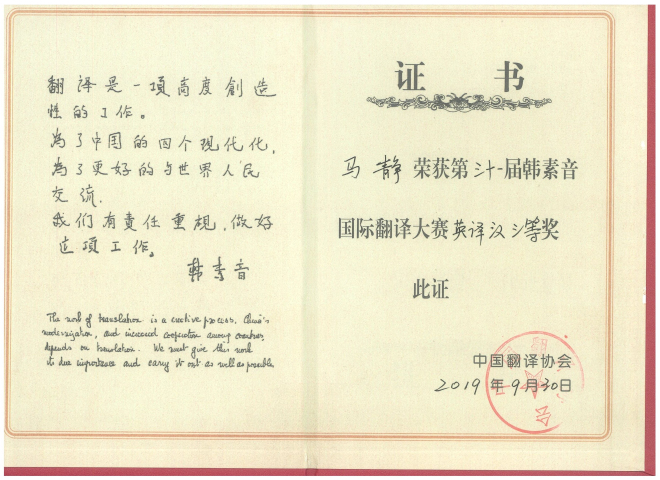 翻译是一項高度創造
性的工作。
為了中国的四个现代化,
為了更好的与世界人民
交流,
我们有責任重視,做好
这项工作。
韩素音
The work of translation is a creative process. China's
modernization, and increased cooperation among countries,
depends on translation. We must give this work
its due importance and carry it out as well as possible.
证 书
马静 荣获第三十一届韩素音
国际翻译大赛英译汉三等奖
此证
中国翻译协会
2019 年 9 月 30 日